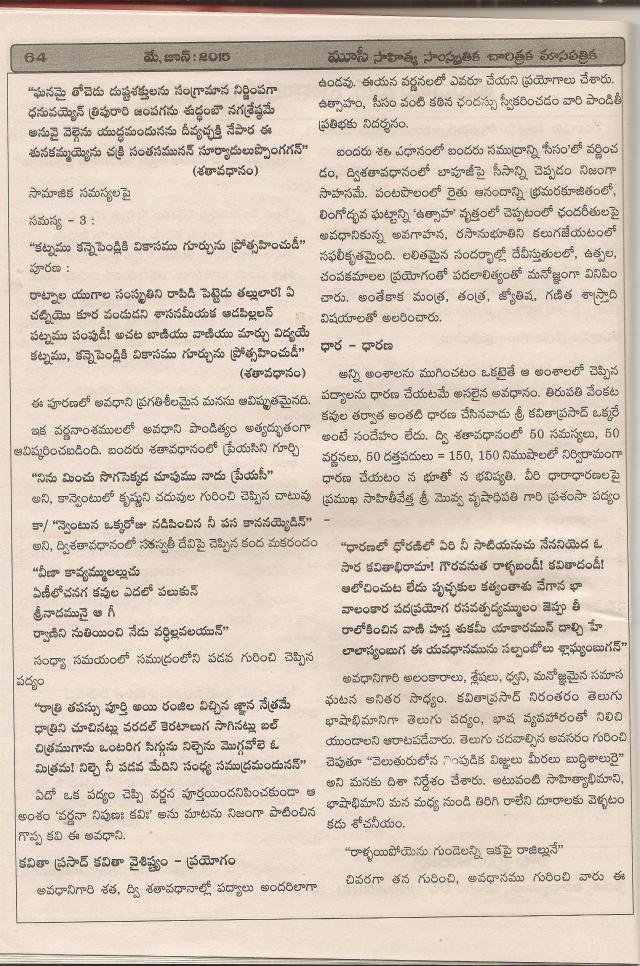 64 మే, జూన్ : 2015 మూసీ సాహిత్య సాంస్కృతిక చారిత్రక మాసపత్రిక
“ఘనమై తోచెడు దుష్టశక్తులను సంగ్రామాన నిర్జింపగా
ధనువయ్యెన్ త్రిపురారి జంపగను శుద్ధంబౌ నగశ్రేష్ఠమే
అనువై వెల్గెను యుద్ధమందునను దీవ్యచ్ఛక్తి నేపార ఈ
శునకమ్మయ్యెను చక్రి సంతసమునన్ సూర్యాదులుప్పొంగగన్”
(శతావధానం)
సామాజిక సమస్యలపై
సమస్య - 3 :
“కట్నము కన్నెపెండ్లికి వికాసము గూర్చును ప్రోత్సహించుడీ”
పూరణ :
రాట్నాల యుగాల సంస్కృతిని రాపిడి పెట్టెడు తల్లులార! ఏ
చట్నియొ కూర వండుదని శాసనమీయక ఆడపిల్లలన్
పట్నము పంపుడీ! అచట బాణియు వాణియు మార్చు విద్యయే
కట్నము, కన్నెపెండ్లికి వికాసము గూర్చును ప్రోత్సహించుడీ”
(శతావధానం)
ఈ పూరణలో అవధాని ప్రగతిశీలమైన మనసు ఆవిష్కృతమైనది.
ఇక వర్ణనాంశములలో అవధాని పాండిత్యం అత్యద్భుతంగా
ఆవిష్కరించబడింది. బందరు శతావధానంలో ప్రేయసిని గూర్చి
“నిను మించు సొగసెక్కడ చూపుము నాదు ప్రేయసీ”
అని, కాన్వెంటులో కృష్ణుని చదువుల గురించి చెప్పిన చాటువు
కా/ “న్వెంటున ఒక్కరోజు నడిపించిన నీ పస కాననయ్యెడిన్”
అని, ద్విశతావధానంలో సరస్వతీ దేవిపై చెప్పిన కంద మకరందం
“వీణా కావ్యమ్ములల్లుచు
ఏణీలోచనగ కవుల ఎదలో పలుకున్
శ్రీనాదమునై ఆ గీ
ర్వాణిని నుతియించి నేడు వర్ధిల్లవలయున్”
సంధ్యా సమయంలో సముద్రంలోని పడవ గురించి చెప్పిన
పద్యం
“రాత్రి తపస్సు పూర్తి అయి రంజిల విచ్చిన జ్ఞాన నేత్రమే
ధాత్రిని చూచినట్లు వరదల్ కెరటాలుగ సాగినట్లు బల్
చిత్రముగాను ఒంటరిగ సిగ్గును నిల్చెను మొగ్గవోలె ఓ
మిత్రమ! నిల్చె నీ పడవ మేదిని సంధ్య సముద్రమందునన్”
ఏదో ఒక పద్యం చెప్పి వర్ణన పూర్తయిందనిపించకుండా ఆ
అంశం ‘వర్ణనా నిపుణః కవిః’ అను మాటను నిజంగా పాటించిన
గొప్ప కవి ఈ అవధాని.
కవితా ప్రసాద్ కవితా వైశిష్ట్యం - ప్రయోగం
అవధానిగారి శత, ద్వి శతావధానాల్లో పద్యాలు అందరిలాగా
ఉండవు. ఈయన వర్ణనలలో ఎవరూ చేయని ప్రయోగాలు చేశారు.
ఉత్సాహం, సీసం వంటి కఠిన ఛందస్సు స్వీకరించడం వారి పాండితీ
ప్రతిభకు నిదర్శనం.
బందరు శతావధానంలో బందరు సముద్రాన్ని ‘సీసం’లో వర్ణించ
డం, ద్విశతావధానంలో బాపూజీపై సీసాన్ని చెప్పడం నిజంగా
సాహసమే. పంటపొలంలో రైతు ఆనందాన్ని భ్రమరకూజితంలో,
లింగోద్భవ ఘట్టాన్ని ‘ఉత్సాహ’ వృత్తంలో చెప్పటంలో ఛందరీతులపై
అవధానికున్న అవగాహన, రసానుభూతిని కలుగజేయటంలో
సఫలీకృతమైంది. లలితమైన సందర్భాల్లో దేవీస్తుతులలో, ఉత్పల,
చంపకమాలల ప్రయోగంతో పదలాలిత్యంతో మనోజ్ఞంగా వినిపిం
చారు. అంతేకాక మంత్ర, తంత్ర, జ్యోతిష, గణిత శాస్త్రాది
విషయాలతో అలరించారు.
ధార - ధారణ
అన్ని అంశాలను ముగించటం ఒకటైతే ఆ అంశాలలో చెప్పిన
పద్యాలను ధారణ చేయటమే అసలైన అవధానం. తిరుపతి వేంకట
కవుల తర్వాత అంతటి ధారణ చేసినవాడు శ్రీ కవితాప్రసాద్ ఒక్కరే
అంటే సందేహం లేదు. ద్వి శతావధానంలో 50 సమస్యలు, 50
వర్ణనలు, 50 దత్తపదులు = 150, 150 నిముషాలలో నిర్విరామంగా
ధారణ చేయటం న భూతో న భవిష్యతి. వీరి ధారాధారణలపై
ప్రముఖ సాహితీవేత్త శ్రీ మొవ్వ వృషాధిపతి గారి ప్రశంసా పద్యం
-
“ధారణలో ధోరణిలో ఏరి నీ సాటియనుచు నేననియెద ఓ
సార కవితాభిరామా! గౌరవనుత రాళ్ళబండీ! కవితాదండీ!
ఆలోచించుట లేదు పృచ్ఛకుల కత్యంతాశు వేగాన భా
వాలంకార పదప్రయోగ రసవత్పద్యమ్ములం జెప్పు తీ
రాలోకించిన వాణి హస్త శుకమీ యాకారమున్ దాల్చి హే
లాలాస్యంబుగ ఈ యవధానమును సల్పంబోలు శ్లాఘ్యంబుగన్”
అవధానిగారి అలంకారాలు, శ్లేషలు, ధ్వని, మనోజ్ఞమైన సమాస
ఘటన అనితర సాధ్యం. కవితాప్రసాద్ నిరంతరం తెలుగు
భాషాభిమానిగా తెలుగు పద్యం, భాష వ్యవహారంతో నిలిచి
యుండాలని ఆరాటపడేవారు. తెలుగు చదవాల్సిన అవసరం గురించి
చెపుతూ “వెలుతురులోన నింపుడిక విజ్ఞులు మీరలు బుద్ధిశాలురై”
అని మనకు దిశా నిర్దేశం చేశారు. అటువంటి సాహిత్యాభిమాని,
భాషాభిమాని మన మధ్య నుండి తిరిగి రాలేని దూరాలకు వెళ్ళటం
కడు శోచనీయం.
“రాళ్ళయిపోయెను గుండెలన్ని ఇకపై రాజిల్లునే”
చివరగా తన గురించి, అవధానము గురించి వారు ఈ